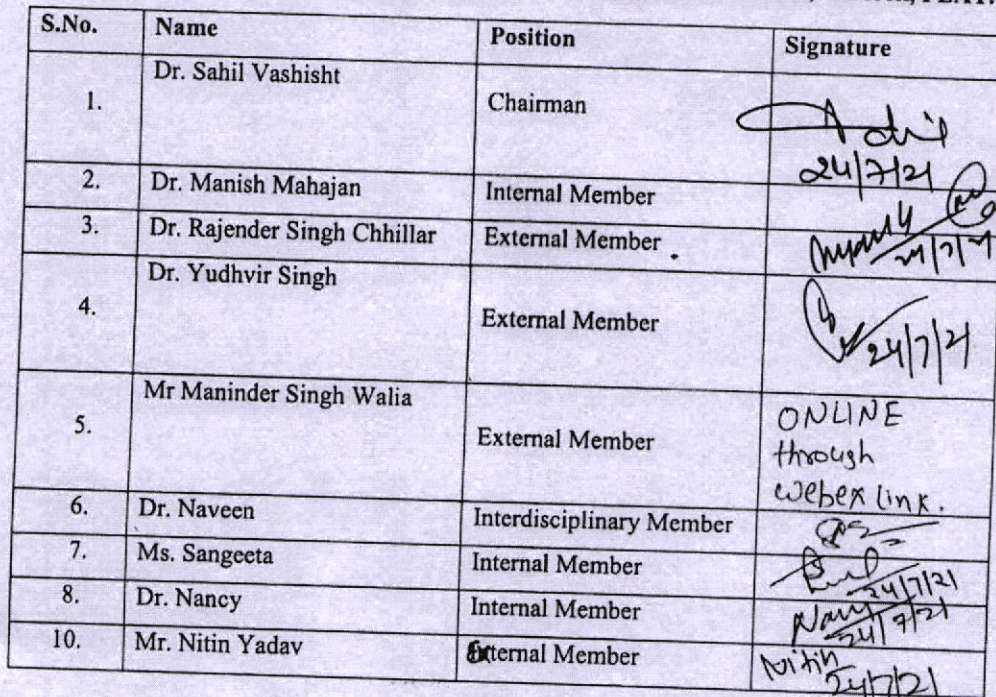 S.No. Name Position Signature
1. Dr. Sahil Vashisht Chairman
24/7/21
2. Dr. Manish Mahajan Internal Member
3. Dr. Rajender Singh Chhillar External Member
24/7/21
4. Dr. Yudhvir Singh External Member
24/7/21
5. Mr Maninder Singh Walia External Member ONLINE
through
webex link.
6. Dr. Naveen Interdisciplinary Member
7. Ms. Sangeeta Internal Member
24/7/21
8. Dr. Nancy Internal Member Nancy
24/7/21
10. Mr. Nitin Yadav External Member Nitin
24/7/21